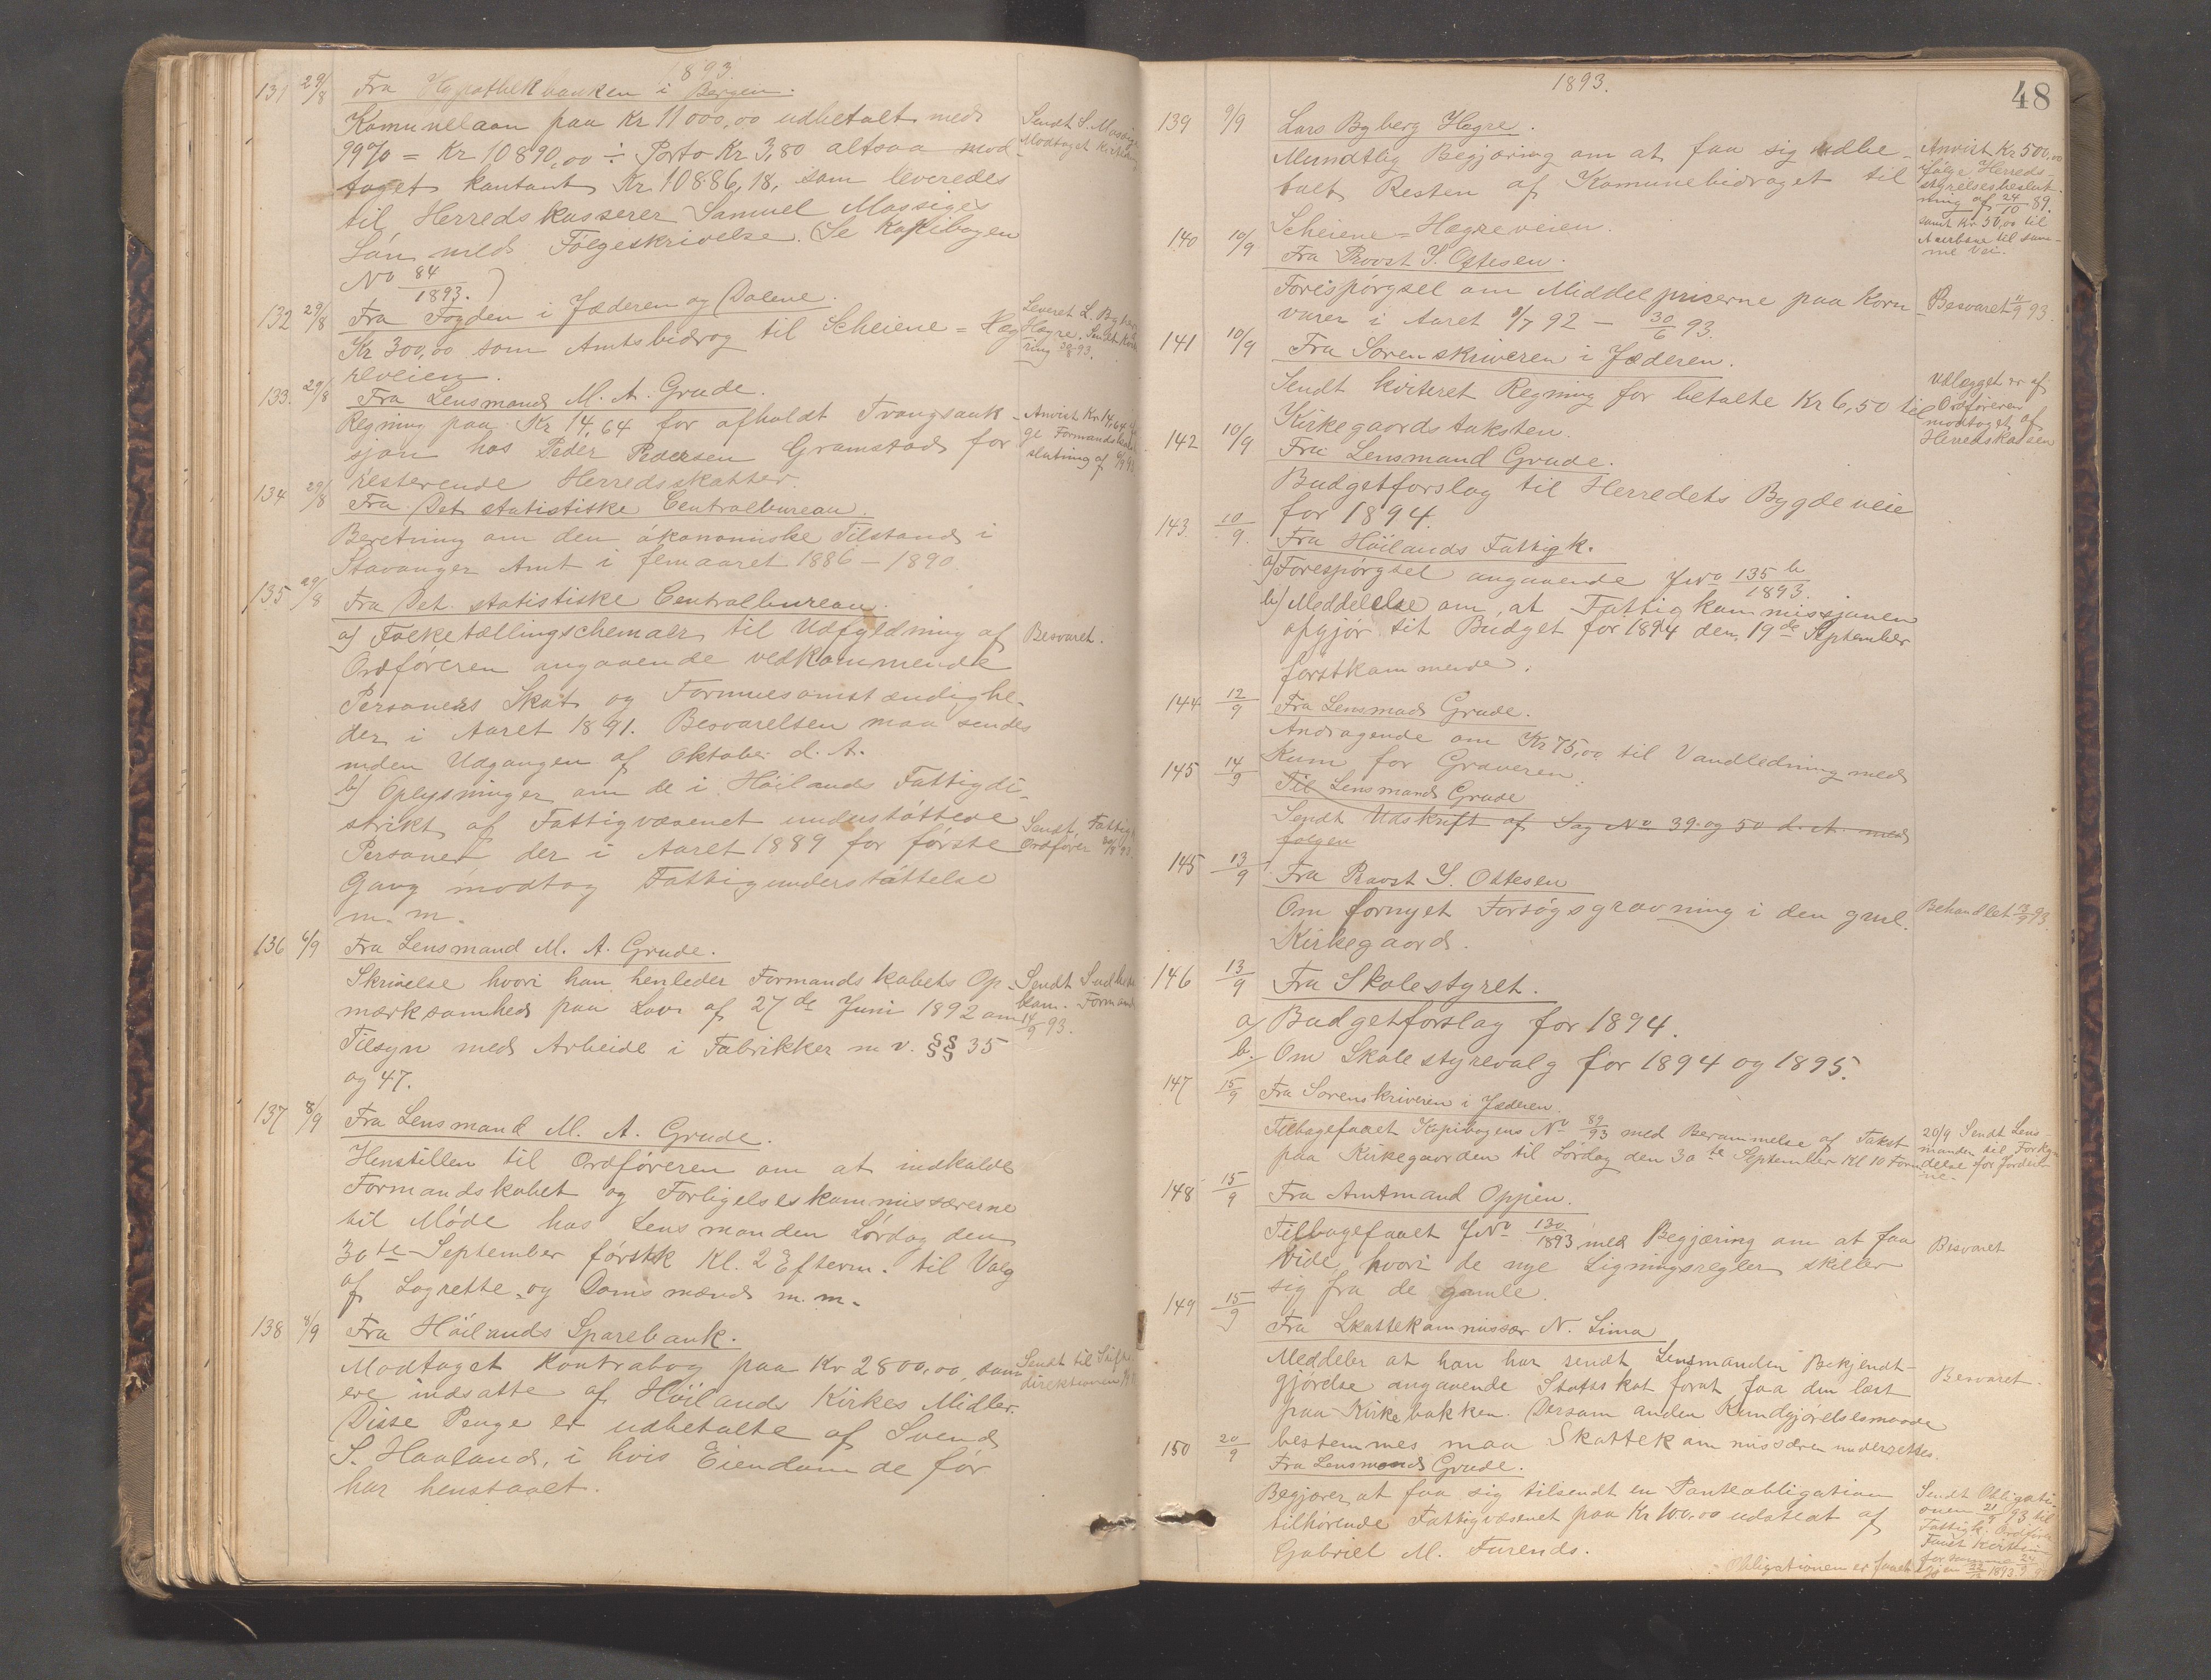 1893.
131 29/8 Fra Hypothekbanken i Bergen.
Komunelaan paa Kr 11000,00 udbetalt med
99% = Kr 10890,00 ÷ Porto Kr 3,80 altsaa mod-
taget kontant Kr. 10886,18, som leveredes
til Herredskasserer Samuel Massiges
Sön med Fölgeskrivelse. (Se Kopibogen
No 84/1893.)
Sendt S. Massige
Modtaget
132 29/8 Fra Fogden i Jæderen og Dalene.
Kr 300,00 som Amtsbidrag til Scheiene = Hög
reveien.
Leveret L. Byberg
Høgre. Sendt
ring 29/8 93.
133. 29/8 Fra Lensmand M. A. Grude.
Regning paa Kr 14,64 for afholdt Tvangsauk-
sjon hos Peder Pedersen Gramstad for
resterende Herredsskatter.
Anvist Kr. 14,64
ge Formandsbe
slutning af
134 29/8 Fra Det statistiske Centralbureau.
Beretning om den ökonomiske Tilstand i
Stavanger Amt i femaaret 1886 - 1890.
135 29/8 Fra Det. statistiske Centralbureau.
a) Folketællingschemaer til Udfyldning af
Ordföreren angaaende vedkommende
Personers Skat og Formuesomstændighe-
der i Aaret 1891. Besvarelsen maa sendes
inden Udgangen af Oktober d. A.
Besvaret.
b) Oplysninger om de i Höilands Fattigdi-
strikt af Fattigvæsenet understöttede
Personer der i Aaret 1889 for förste
Gang modtog Fattigunderstöttelse
m. m.
Sendt Fattig
Ordfører
136 6/9 Fra Lensmand M. A. Grude.
Skrivelse hvori han henleder Formandskabets Op-
mærksomhed paa Lov af 27de Juni 1892 om
Tilsyn med Arbeide i Fabrikker m. v. §§ 35
og 47.
Sendt
kom. Formand
14/9 93.
137 8/9 Fra Lensmand M. A. Grude.
Henstillen til Ordföreren om at indkalde
Formandskabet og Forligelseskommissærerne
til Möde hos Lensmanden Lördag den
30te September förstk Kl. 2 Efterm. til Valg
af Lagrette- og Domsmænd m. m.
138 8/9 Fra Höilands Sparebank.
Modtaget Kontrabog paa Kr 2800,00, som
ere indsatte af Höilands Kirkes Midler.
Disse Penge er udbetalte af Svend
S. Haaland, i hvis Eiendom de för
har henstaaet.
Sendt til Stifts
direktionen
48
1893.
139 9/9 Lars Byberg Høgre.
Mundtlig Begjæring om at faa sig udbe-
talt Resten af Komunebidraget til
Scheiene = Høgreveien.
Anvist Kr 500,00
ifølge Herreds-
styrelsesbeslut-
ning af 24/10 89.
samt Kr 50,00 til
til sam-
me Vei.
140 10/9 Fra Provst Y. Ottesen.
Forespörgsel om Middelpriserne paa Korn-
varer i Aaret 1/7 92 - 30/6 93.
Besvaret 11/9 93.
141 10/9 Fra Sorenskriveren i Jæderen.
Sendt kviteret Regning for betalte Kr 6,50 til
Kirkegaardstaksten.
Udlægget er af
Ordføreren
modtaget af
Herredskassen
142 10/9 Fra Lensmand Grude.
Budgetforslag til Herredets Bygdeveie
for 1894.
143. 10/9. Fra Höilands Fattigk.
a) Forespörgsel angaaende JNo 135 b/1893.
b) Meddelelse om, at Fattigkommissjonen
opgjör sit Budget for 1894 den 19de September
förstkommende.
144 12/9 Fra Lensmad Grude.
Andragende om Kr 75,00 til Vandledning med
Kum for Graveren.
145 14/9 Til Lensmand Grude
Sendt Udskrift af Sag No 39. og 50 d. A. med
følgen
145 13/9 Fra Provst Y. Ottesen
Om fornyet Forsögsgravning i den gml.
Kirkegaard.
Behandlet 13/9 93.
146 13/9 Fra Skolestyret.
a/ Budgetforslag for 1894.
b./ Om Skolestyrevalg for 1894 og 1895.
147 15/9 Fra Sorenskriveren i Jæderen.
Tilbagefaaet Kopibogens No 89/93 med Berammelse af Takst
paa Kirkegaarden til Lördag den 30te September Kl 10 Form
20/9 Sendt Lens-
manden til Forkyn
delse for
148 15/9 Fra Amtmand Oppen.
Tilbagefaaet JNo 130/1893 med Begjæring om at faa
vide hvori de nye Ligningsregler skiller
sig fra de gamle.
Besvaret
149 15/9 Fra Skattekommissær N. Lima
Meddeler at han har sendt Lensmanden Bekjendt-
gjörelse angaaende Statsskat forat faa den læst
paa Kirkebakken. Dersom anden Kundgjörelsesmaade
bestemmes maa Skattekommissæren underrettes.
Besvaret.
150 20/9 Fra Lensmand Grude.
Begjærer at faa sig tilsendt en Panteobligation
tilhörende Fattigvæsenet paa Kr 100,00 udstedt af
Gabriel M. Furends.
Sendt Obligati-
onen 21/9 93 til
Fattigk. Ordfører
Faaet Kvittering
for samme 24/9
Obligationen er faaet igjen 1893